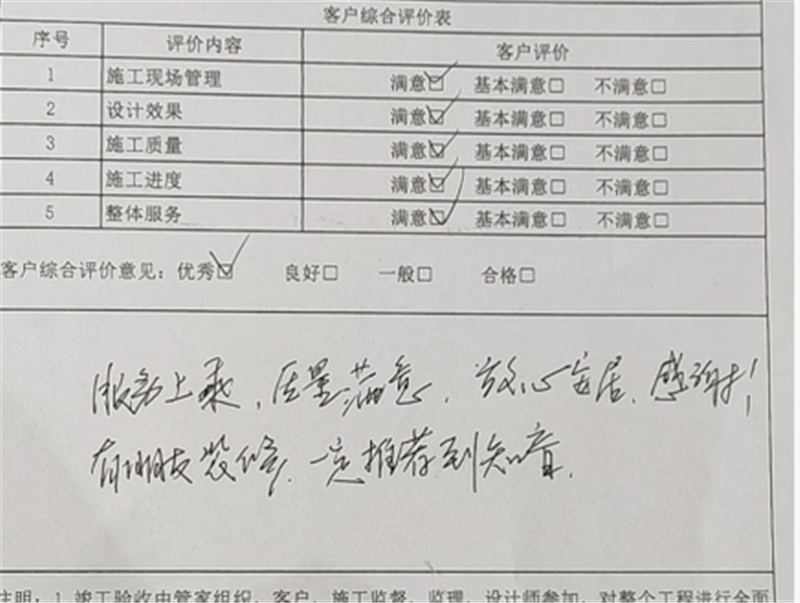 客户综合评价表
序号 评价内容 客户评价
1 施工现场管理 满意☑ 基本满意□ 不满意□
2 设计效果 满意☑ 基本满意□ 不满意□
3 施工质量 满意☑ 基本满意□ 不满意□
4 施工进度 满意☑ 基本满意□ 不满意□
5 整体服务 满意☑ 基本满意□ 不满意□
客户综合评价意见：优秀☑ 良好□ 一般□ 合格□
服务上乘，质量满意，放心家居，感谢！
有朋友装修，一定推荐到知音。
注明：1.竣工验收由管家组织，客户、施工监督、监理、设计师参加，对整个工程进行全面